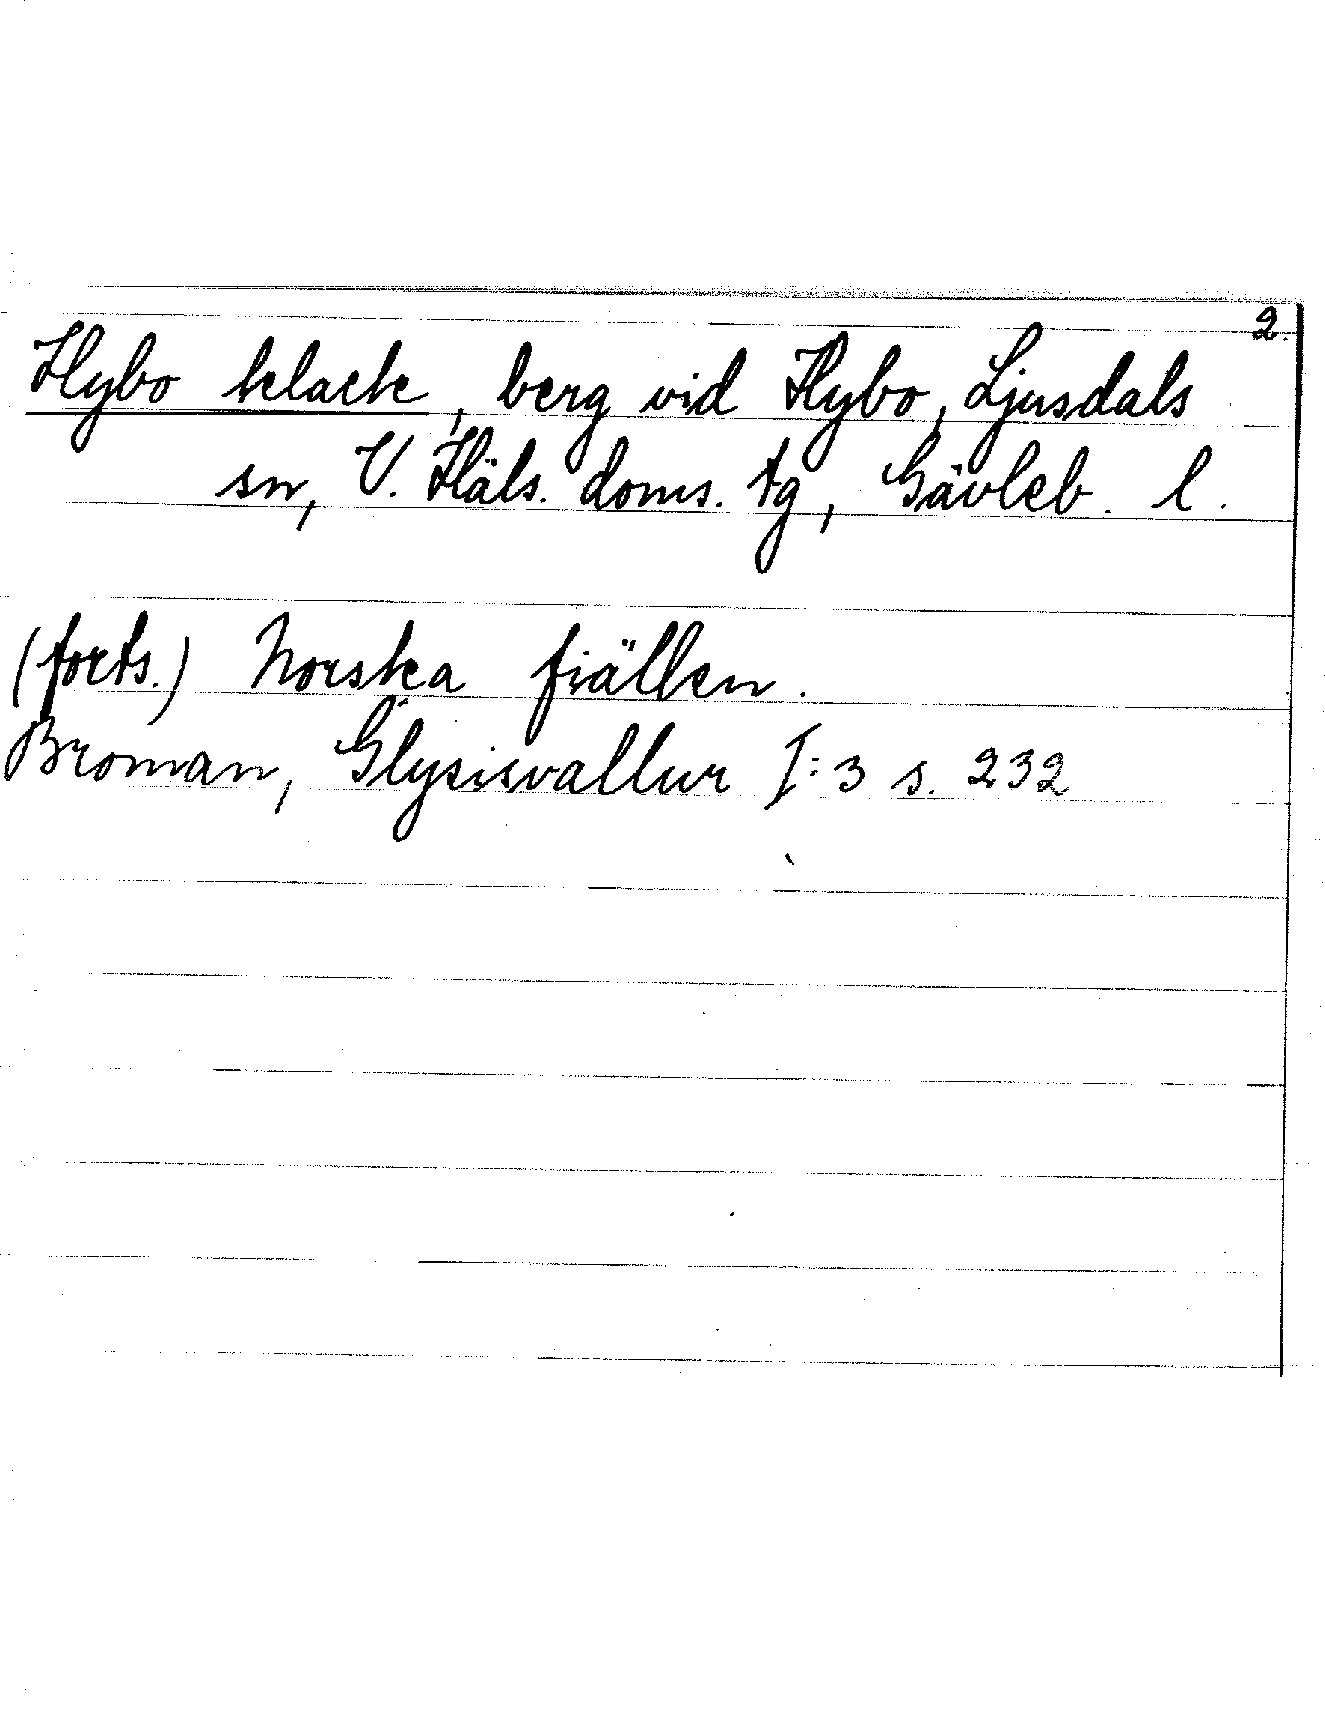 2.
Hybo klack, berg vid Hybo, Ljusdals
sn, V. Häls. doms. tg, Gävleb. l.
(forts.) Norska fiällen.
Broman, Glysisvallur I:3 s. 232